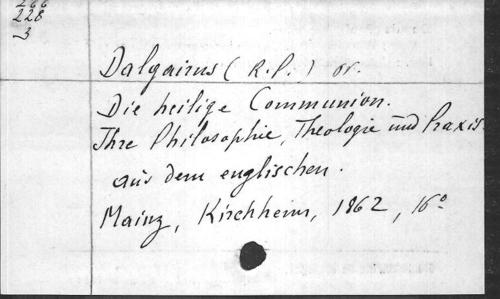 228
3
Dalgairns (R.P.) or.
Die heilige Communion.
Ihre Philosophie, Theologie und Praxis.
aus dem englischen.
Mainz, Kirchheim, 1862, 16º